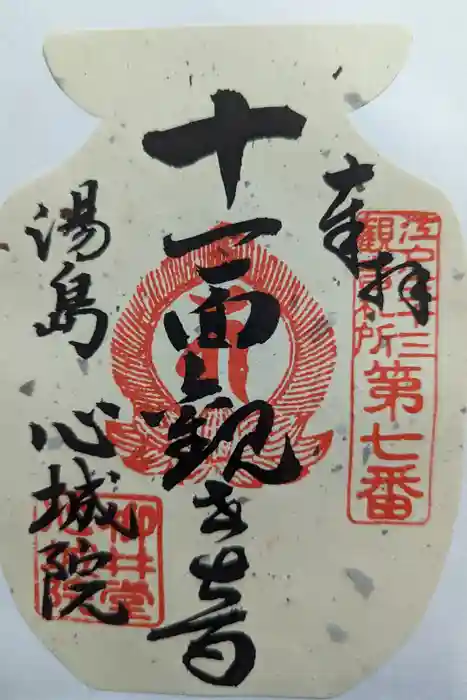 奉拝
江戸三十三
観音札所
第七番
十一面観世音
湯島
心城院